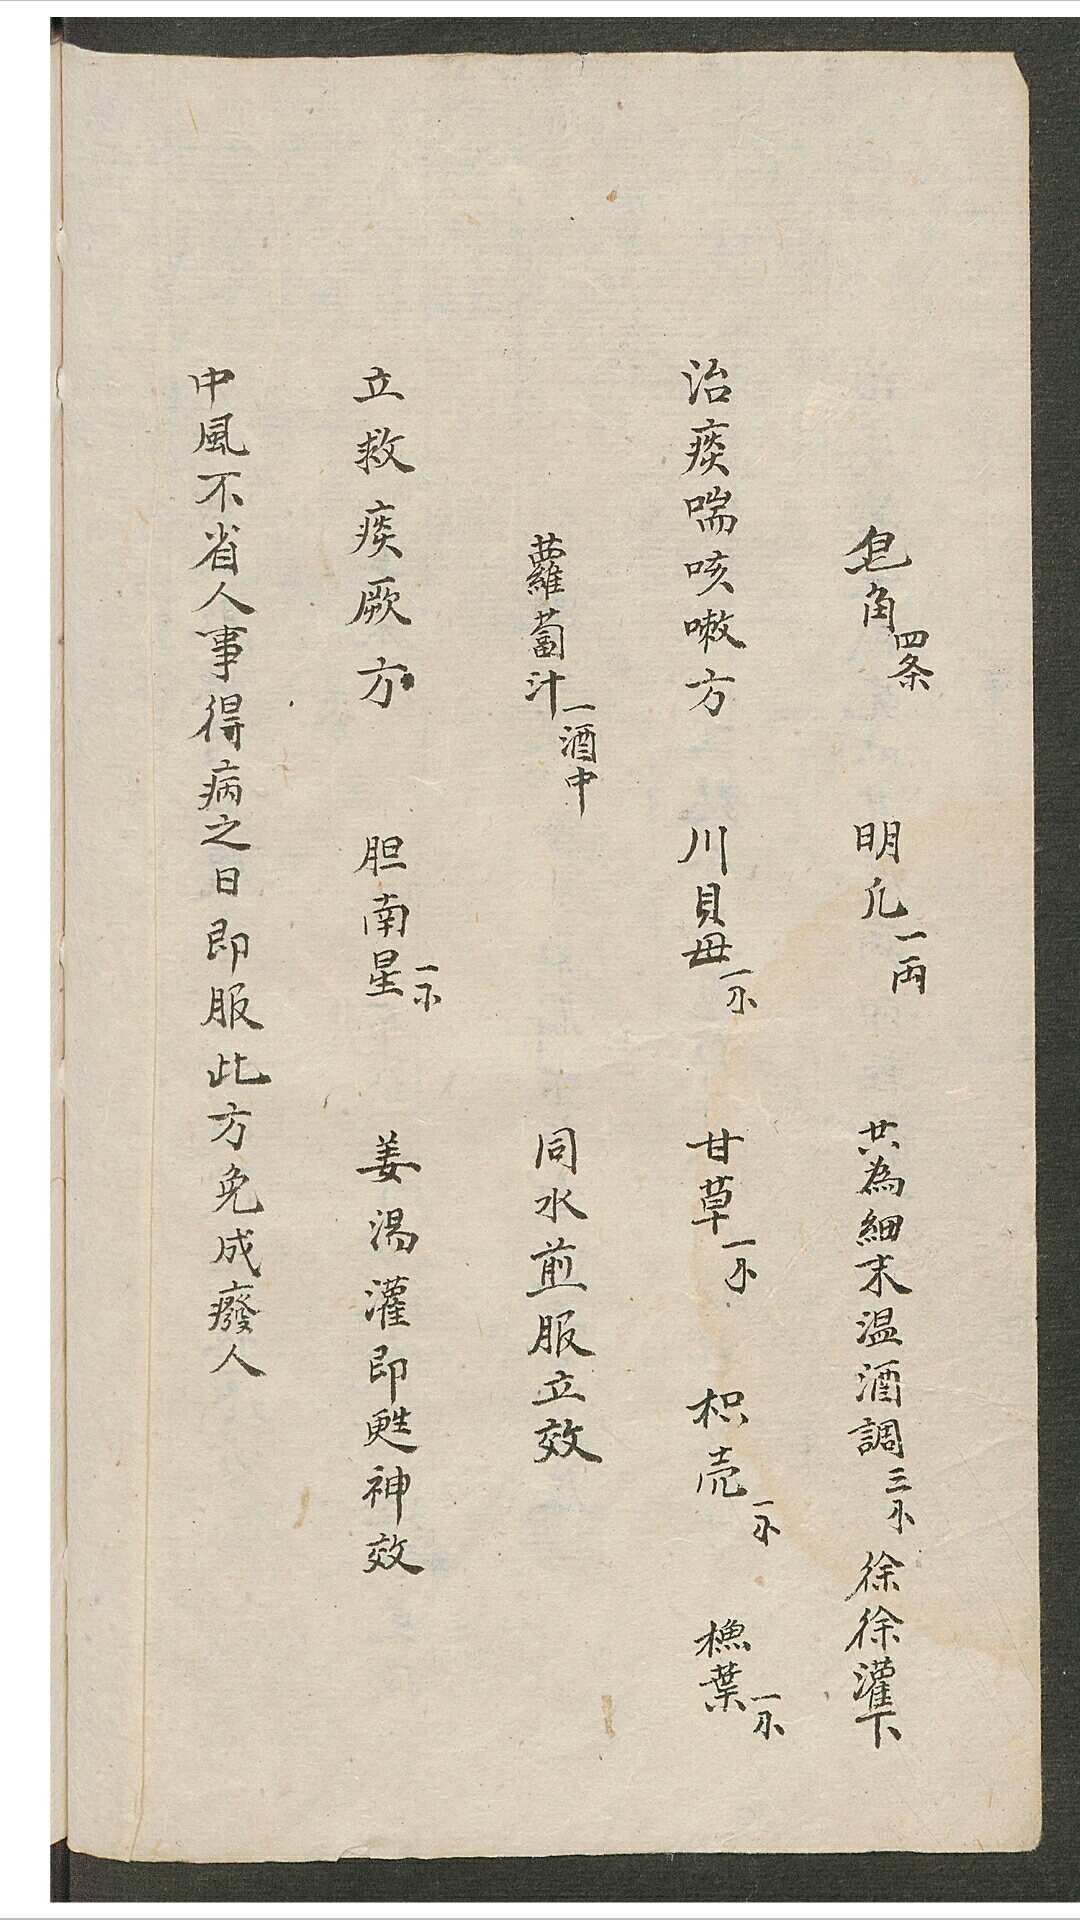 皂角四条 明凢一両 共為細末温酒調三小徐徐灌下
治痰喘咳嗽方 川貝母一小 甘草一小 枳壳一小 樵葉一小
蘿蔔汁一酒中 同水煎服立效
立救痰厥方 胆南星一小 姜湯灌即甦神效
中風不省人事得病之日即服此方免成癈人